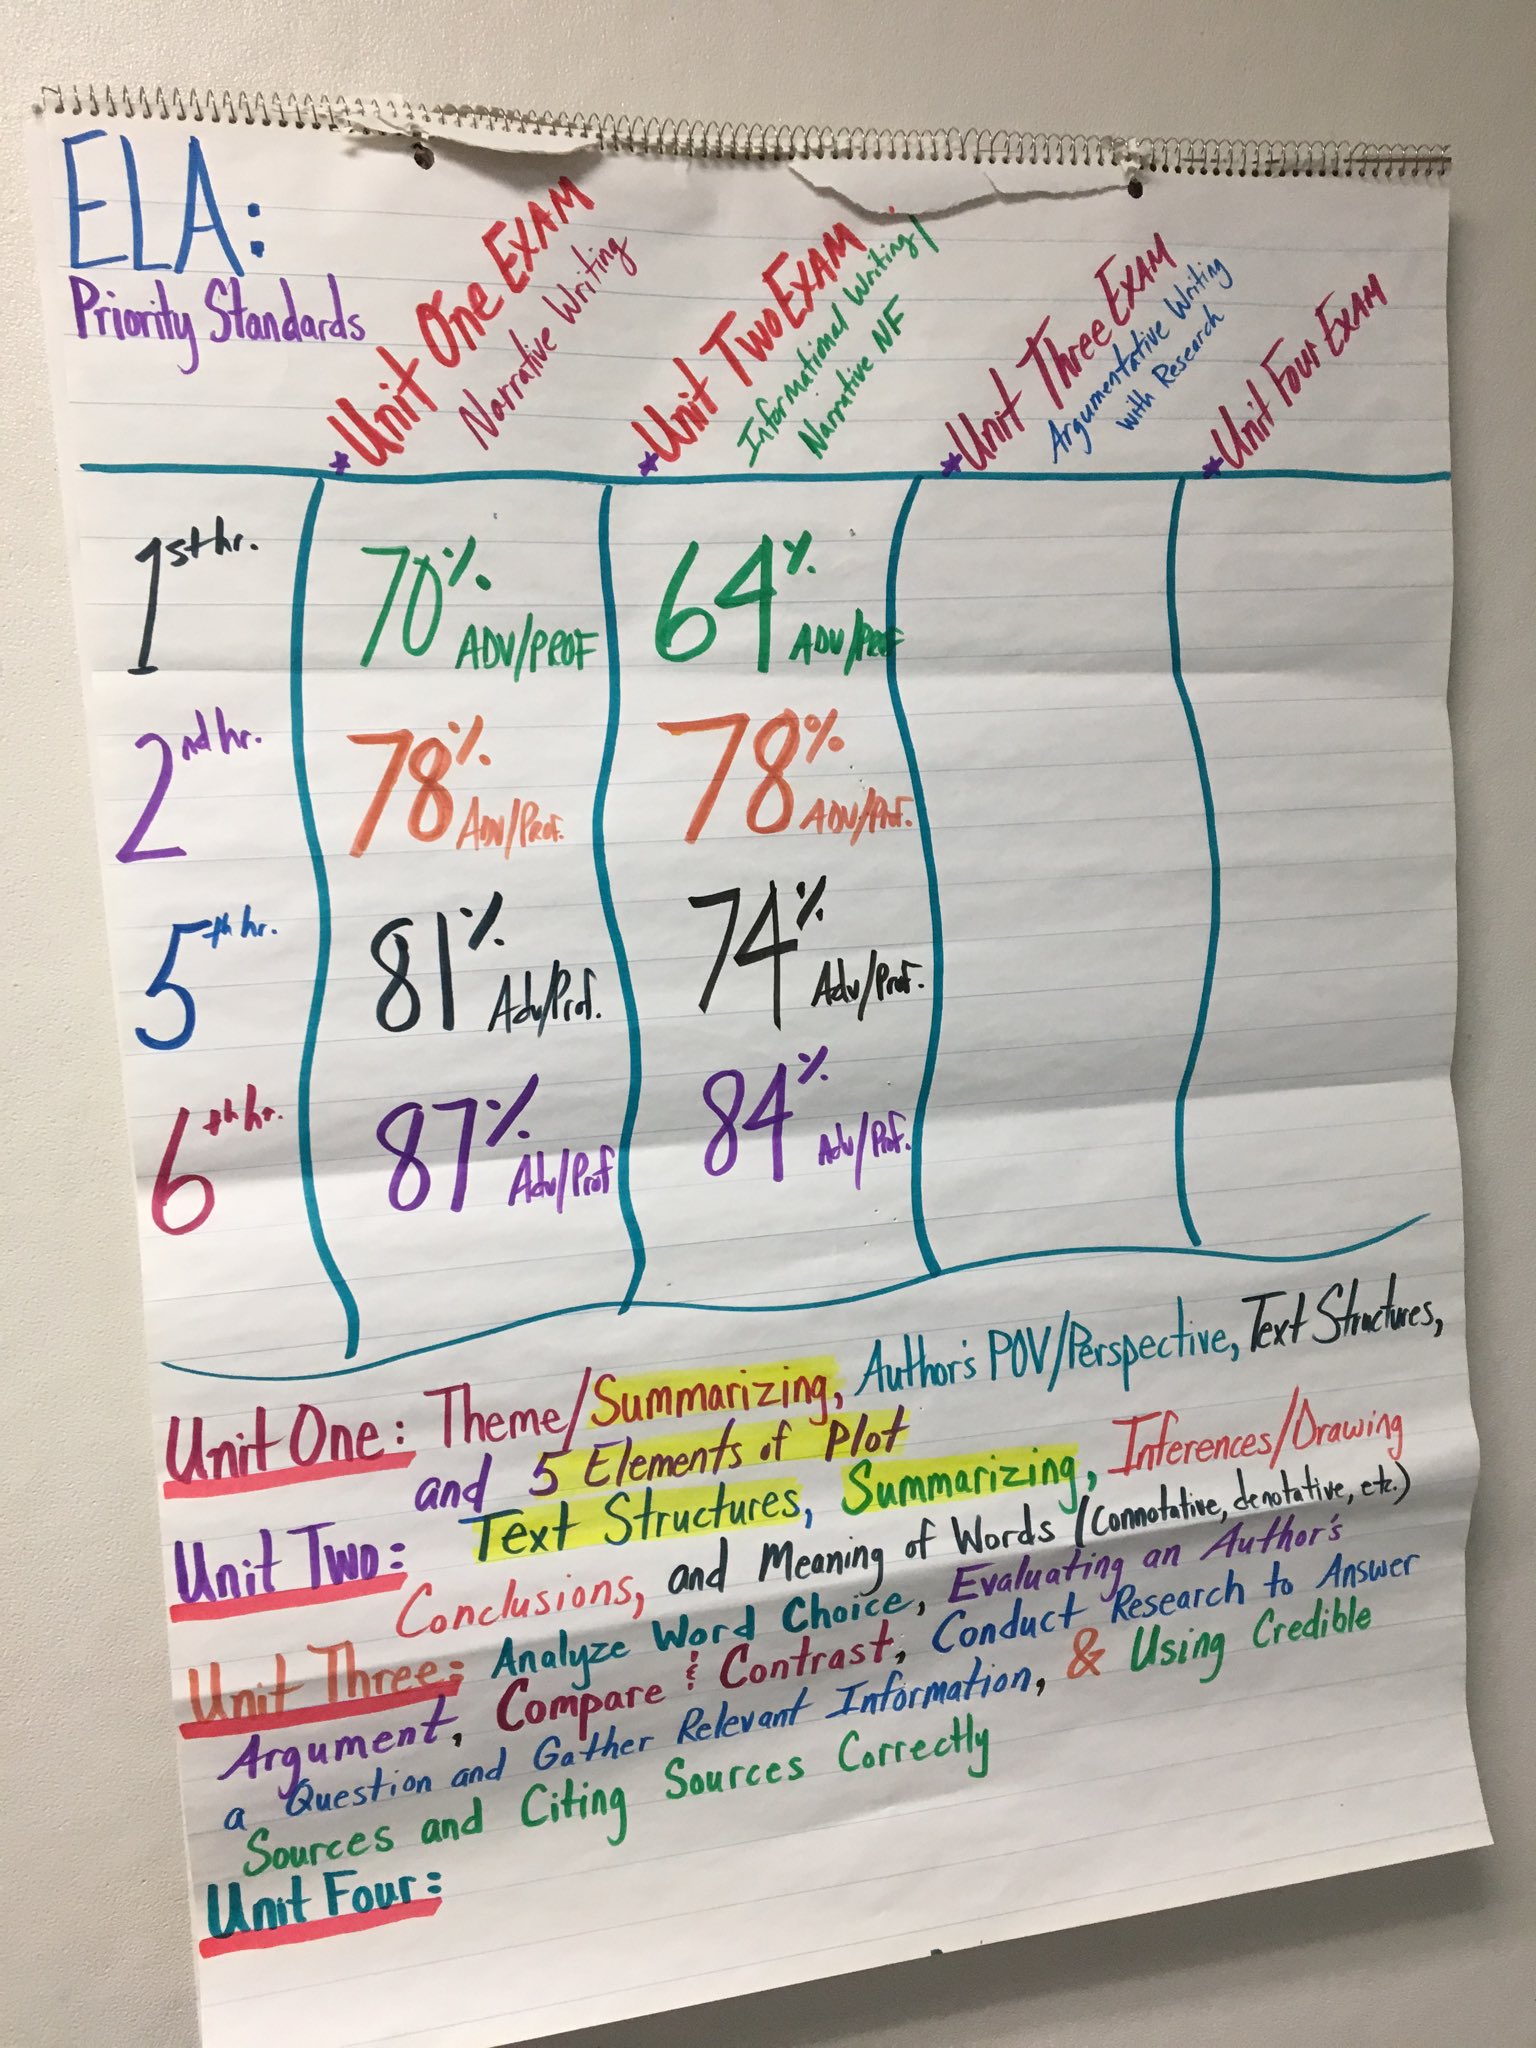 ELA:
Priority Standards
*Unit One EXAM
Narrative Writing
*Unit Two EXAM
Informational Writing/
Narrative NF
*Unit Three EXAM
Argumentative Writing
with Research
*Unit Four EXAM
1st hr.
70% ADV/PROF
64% ADV/PROF
2nd hr.
78% ADV/PROF.
78% ADV/Prof.
5th hr.
81% Adv/Prof.
74% Adv/Prof.
6th hr.
87% Adv/Prof
84% Adv/Prof.
Unit One: Theme/Summarizing, Author's POV/Perspective, Text Structures,
and 5 Elements of Plot
Unit Two: Text Structures, Summarizing, Inferences/Drawing
Conclusions, and Meaning of Words (Connotative, denotative, etc.)
Unit Three: Analyze Word Choice, Evaluating an Author's
Argument, Compare & Contrast, Conduct Research to Answer
a Question and Gather Relevant Information, & Using Credible
Sources and Citing Sources Correctly
Unit Four: